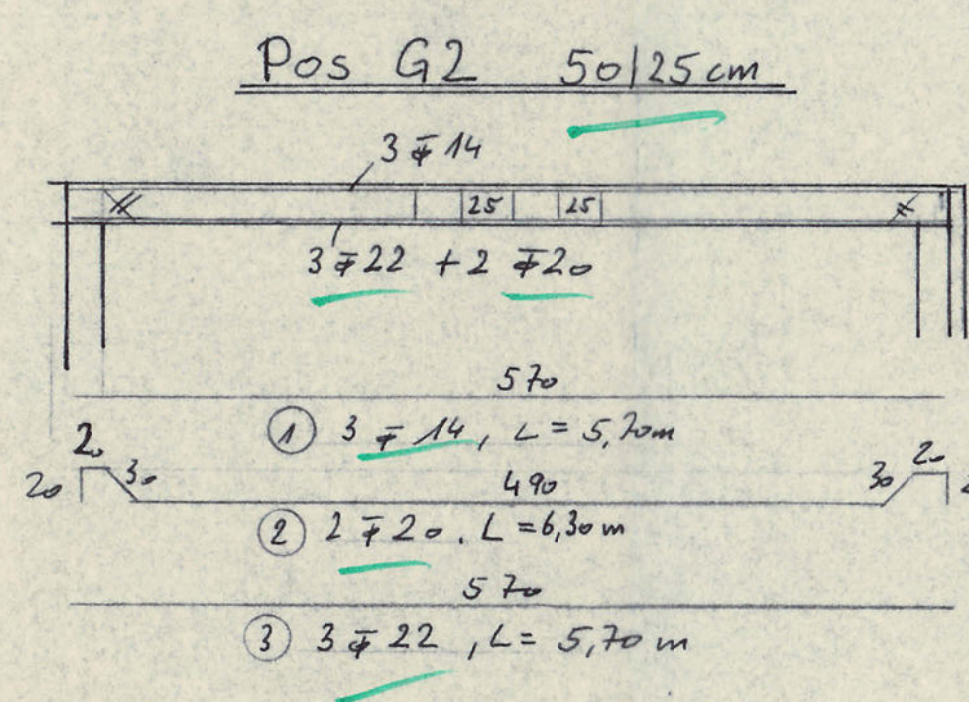 Pos G2 50/25 cm
3 Ŧ 14
25 25
3 Ŧ 22 + 2 Ŧ 20
570
① 3 Ŧ 14, L = 5,70m
20 20
20 30 490 30
② 2 Ŧ 20. L = 6,30 m
570
③ 3 Ŧ 22, L = 5,70 m